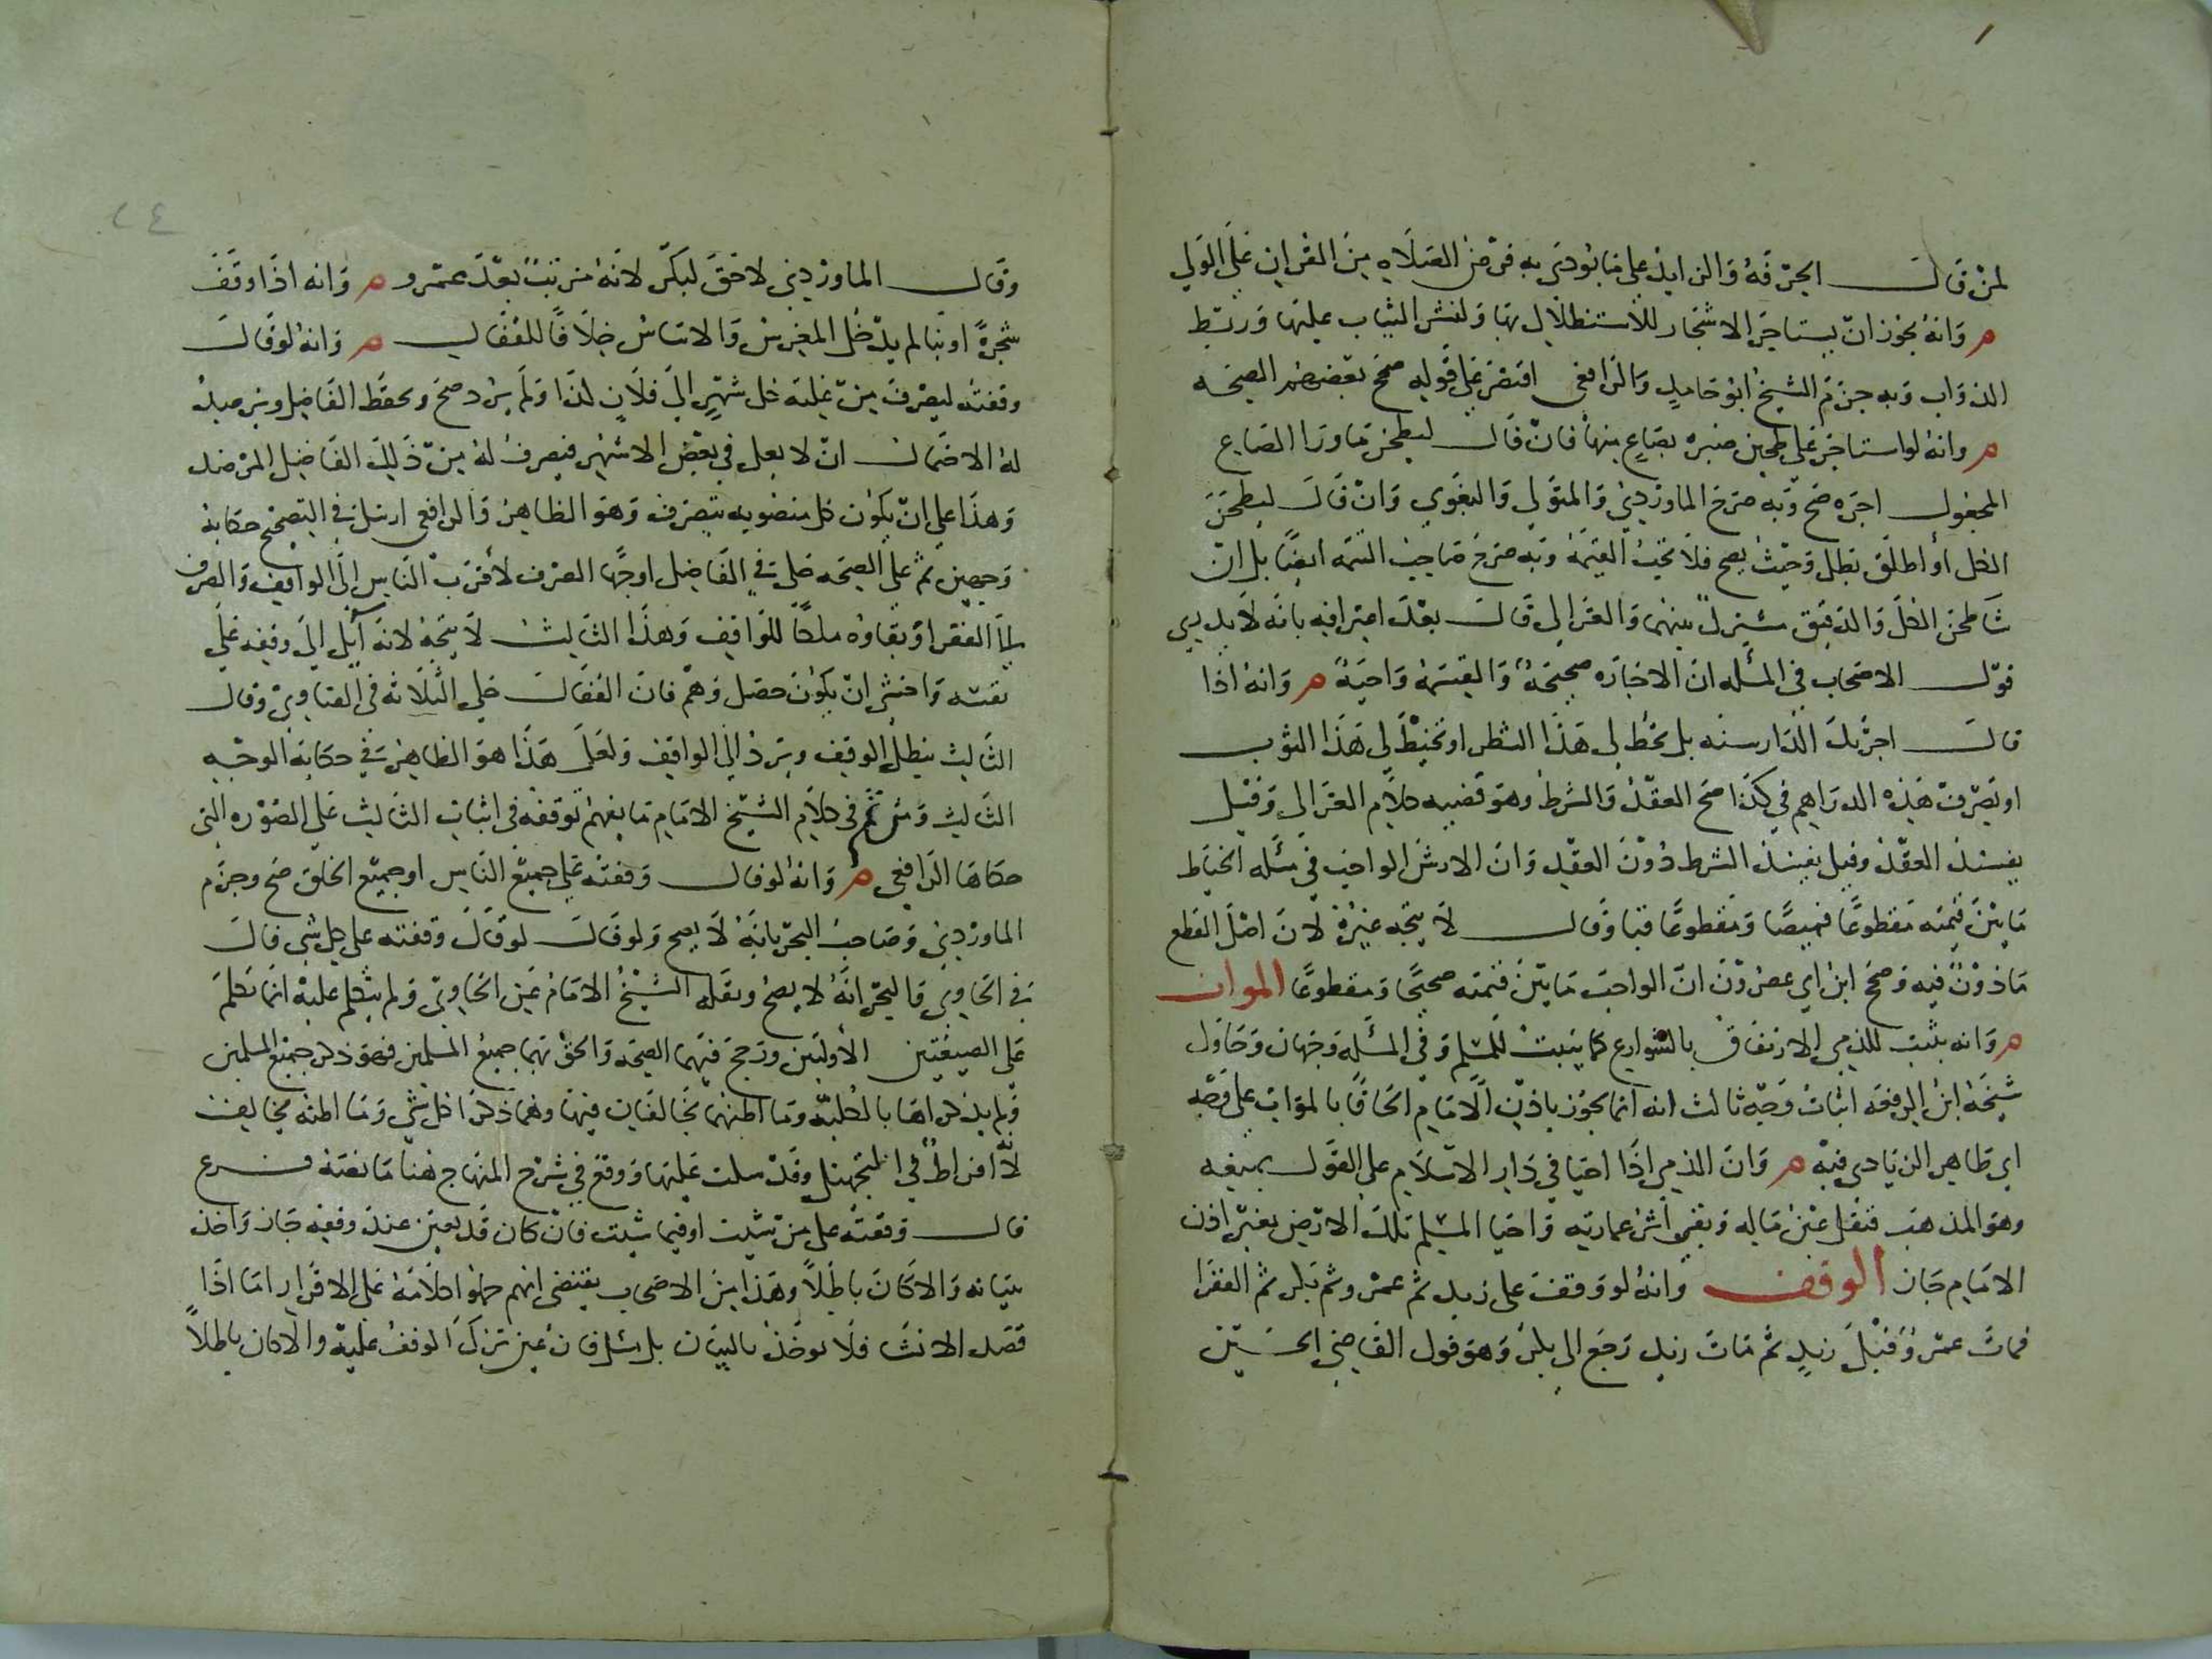 لمن قال الحرفه والزايد على ما يودى به فرض الصلاه من القران على الولي
م وانه يجوز ان يستاجر الاشجار للاستظلال بها ولنشر الثياب عليها وربط
الدواب وبه جزم الشيخ ابو حامد والرافعي اقتصر على قوله صحح بعضهم الصحه
م وانه لو استاجر على طحين صبره بصاع منها فان قال ليطحن ما ورا الصاع
المجعول اجره صح وبه صرح الماوردي والمتولي والبغوي وان قال ليطحن
الكل او اطلق بطل وحيث يصح فلا تجب القيمة وبه صرح صاحب التتمه ايضا بل ان
شا طحن الكل والدقيق مشترك بينهما والغزالي قال بعد اعترافه بانه لا بد لي
قول الاصحاب في المسله ان الاجاره صحيحة والقسمة واجبة م وانه اذا
قال اجرتك الدار سنه بل تخط لي هذا الشطر او تخيط لي هذا الثوب
او تصرف هذه الدراهم في كذا صح العقد والشرط وهو قضيه كلام الغزالي وقيل
يفسد العقد وقيل يفسد الشرط دون العقد وان الارش الواجب في مسله الخياط
ما بين قيمته مقطوعا قميصا ومقطوعا قبا وقال لا يتجه غيره لان اصل القطع
ماذون فيه وصحح ابن ابي عصرون ان الواجب ما بين قيمته صحيحا ومقطوعا الموات
م وانه يثبت للذمي الارتفاق بالشوارع كما يثبت للمسلم وفي المسله وجهان وحاول
شيخه ابن الرفعه اثبات وجه ثالث انه انما يجوز باذن الامام الحاقا بالموات على وجه
ابي طاهر الزيادي فيه م وان الذمي اذا احيا في دار الاسلام على القول بمنعه
وهو المذهب فنقل عين ماله وبقي اثر عمارته واحيا المسلم تلك الارض بغير اذن
الامام جاز الوقف وانه لو وقف على زيد ثم عمرو ثم بكر ثم الفقرا
فمات عمرو قبل زيد ثم مات زيد رجع الى بكر وهو قول القاضي الحسين
وقال الماوردي لا حق لبكر لانه مرتب بعد عمرو م وانه اذا وقف
شجرة او بنا لم يدخل المغرس والاساس خلافا للقفال م وانه لو قال
وقفته ليصرف من غلته كل شهر الى فلان كذا ولم يزد صح ويحفظ الفاضل ويرصد
له الاحتمال ان لا يغل في بعض الاشهر فيصرف له من ذلك الفاضل المرصد
وهذا على ان يكون كل منصوبه يتصرف وهو الظاهر والرافعي ارسل في التصحيح حكاية
وجهين ثم على الصحه حكى في الفاضل اوجها الصرف لاقرب الناس الى الواقف والصرف
الى الفقرا وبقاوه ملكا للواقف وهذا الثالث لا يتجه لانه آيل الى وقفه على
نفسه واخشى ان يكون حصل وهم فان القفال حكى الثلاثه في الفتاوي وقال
الثالث يبطل الوقف ويرد الى الواقف ولعل هذا هو الظاهر في حكاية الوجه
الثالث ومن ثم في كلام الشيخ الامام ما يفهم توقفه في اثبات الثالث على الصوره التي
حكاها الرافعي م وانه لو قال وقفته على جميع الناس او جميع الخلق صح وجزم
الماوردي وصاحب البحر بانه لا يصح ولو قال لو قال وقفته على كل شي قال
في الحاوي والبحر انه لا يصح ونقله الشيخ الامام عن الحاوي ولم يتكلم عليه انما تكلم
على الصيغتين الأوليين ورجح فيهما الصحه والحق بهما جميع المسلمين فهو ذكر جميع المسلمين
ولم يذكراها بالكلية وما اظنهما يخالفان فيها وهما ذكرا كل شي وما اظنه يخالف
لانه افراط في التجهيل وقد سلت عليها ووقع في شرح المنهاج هنا ما نصه فرع
قال وقفته على من شيت او فيما شيت فان كان قد يعين عند وقفه جاز واخذ
ببيانه والا كان باطلا وهذا من الاصحاب يقتضي انهم حملوا كلامه على الاقرار اما اذا
قصد الانشا فلا يوخذ بالبيان بل يسل فان عين نزل الوقف عليه والا كان باطلا